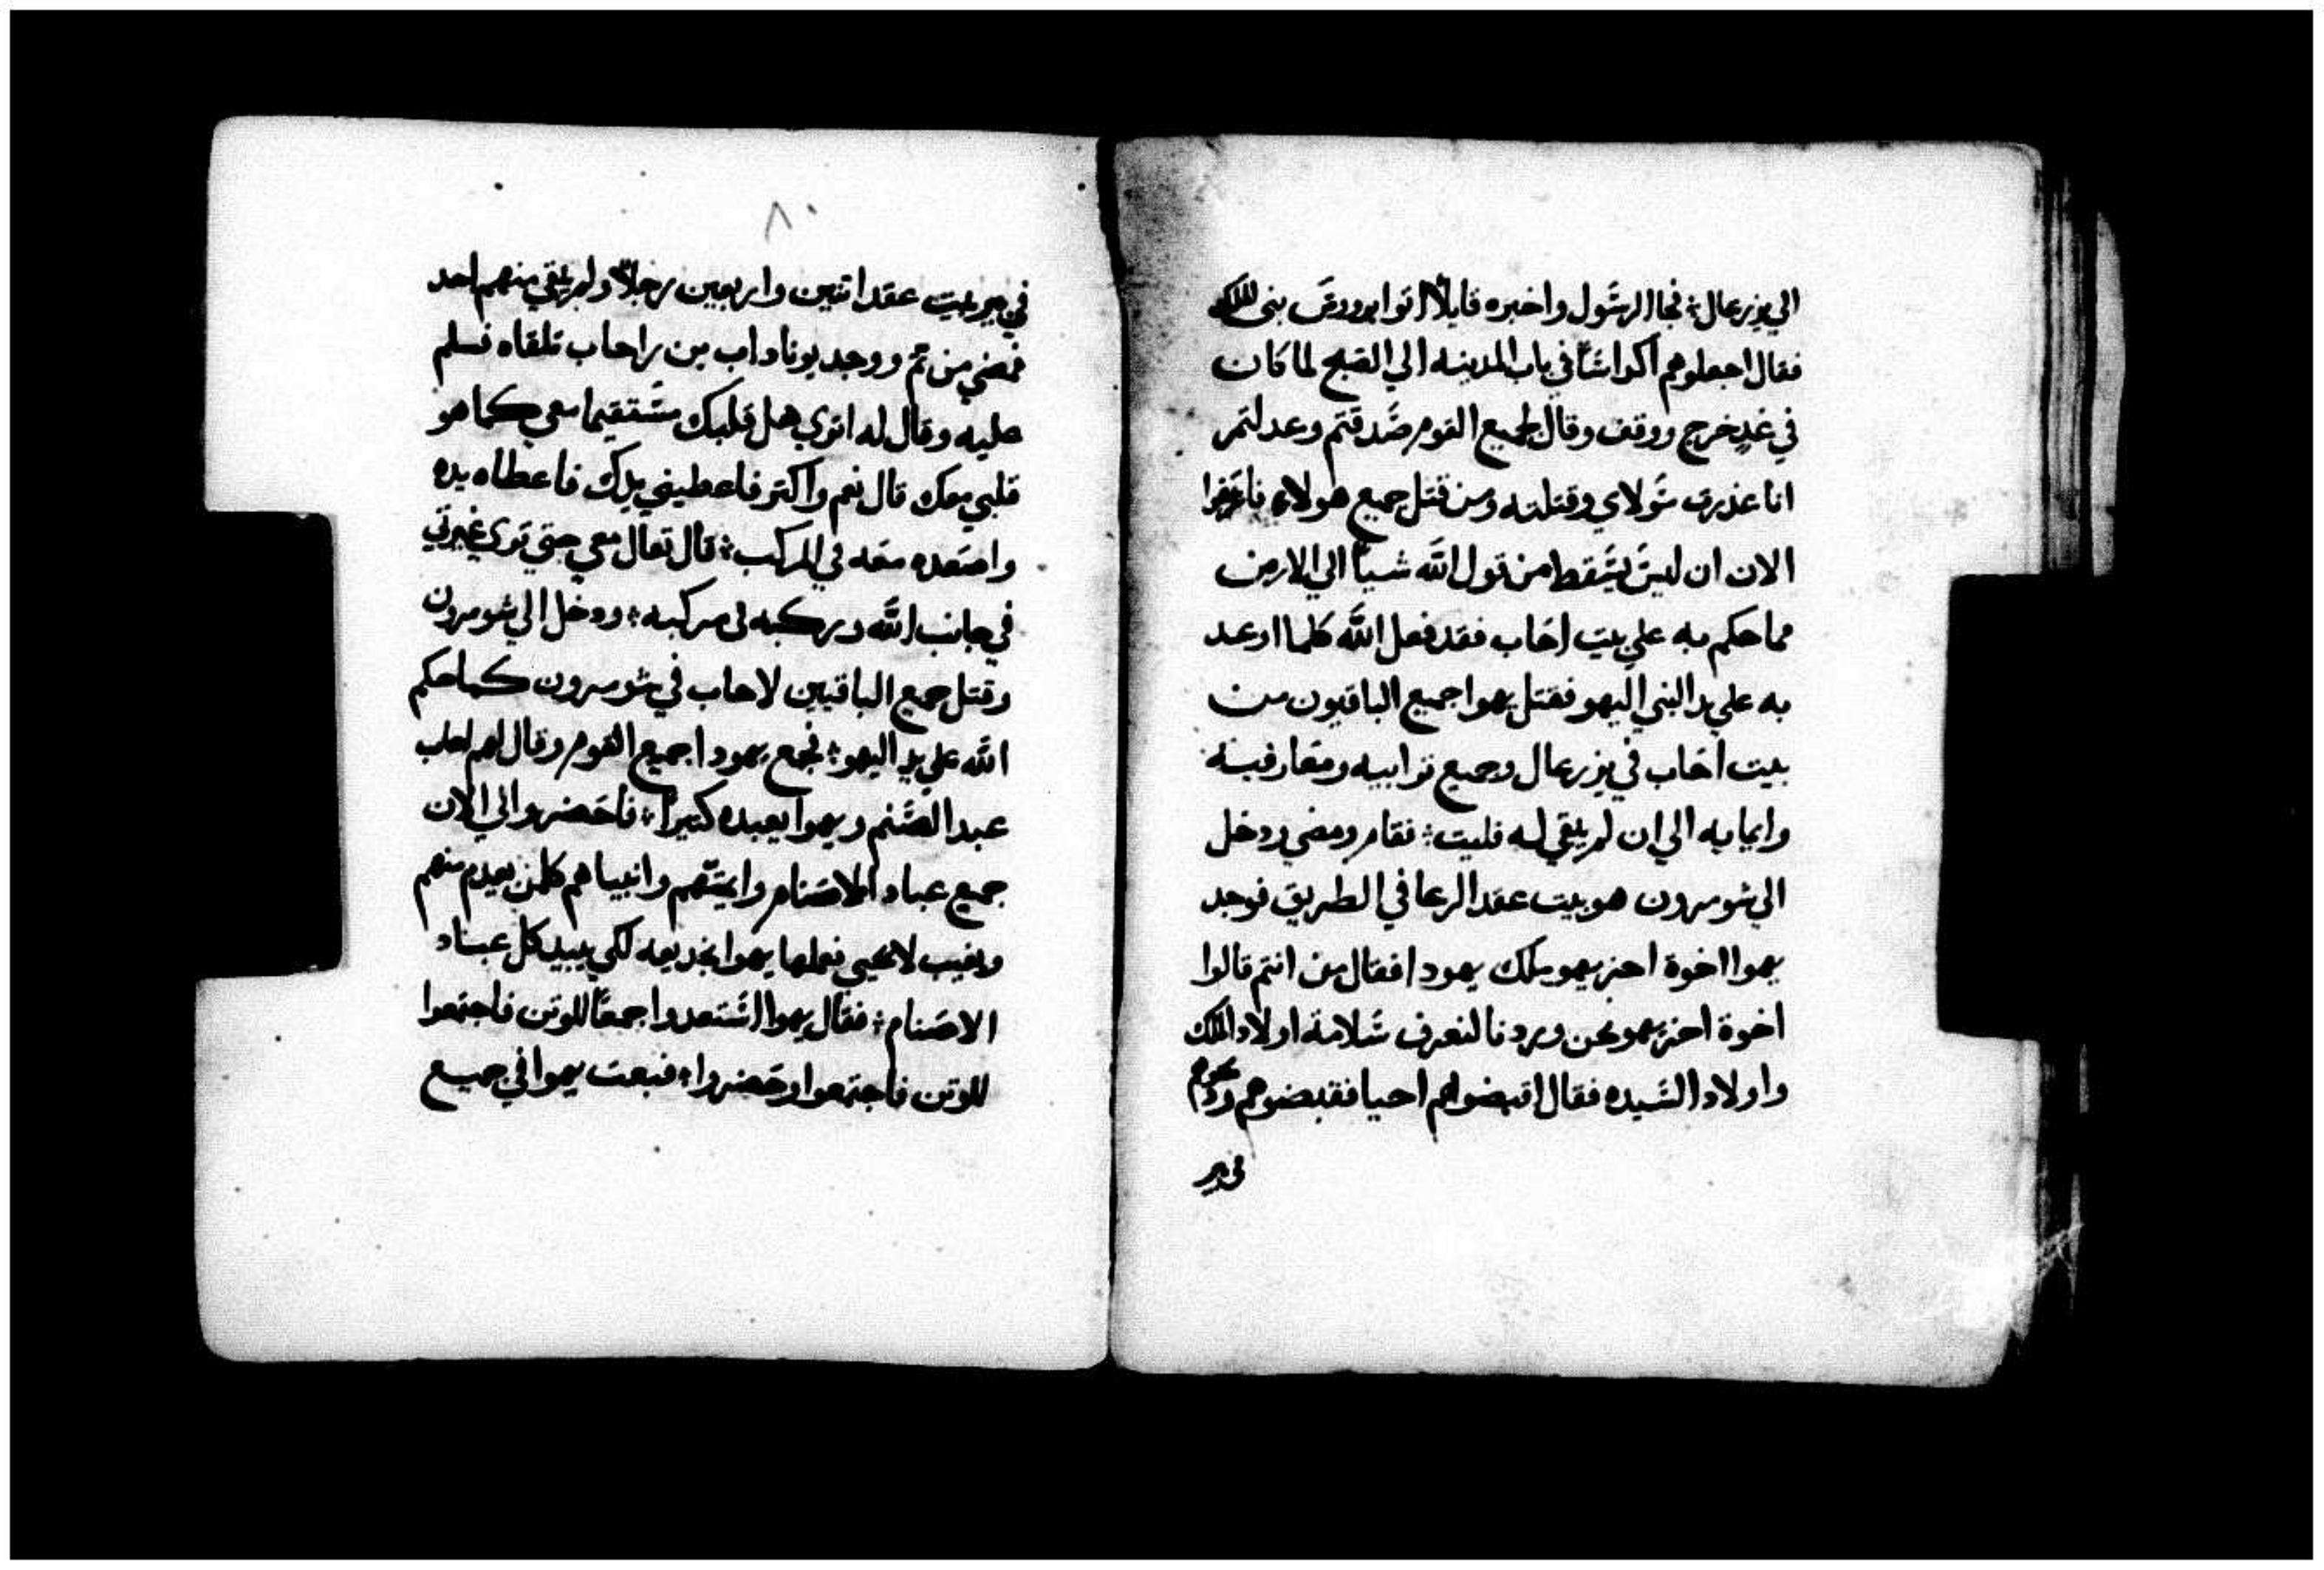 الي يزرعال؛ فجا الرسول واخبره قايلاً اتوا بروس بني الملك
فقال اجعلوهم اكداساً في باب المدينه الي الصبح لما كان
في غدٍ خرج ووقف وقال لجميع القوم صدقتم وعدلتم
انا غدرت مولاي وقتلته ومن قتل جميع هولاء فاعرفوا
الان ان ليس يسقط من قول الله شياً الي الارض
مما حكم به علي بيت اخاب فقد فعل الله كلما اوعد
به علي يد النبي اليهو فقتل يهوا جميع الباقيون من
بيت اخاب في يزرعال وجميع نوابيه ومعارفيه
وايمايه الي ان لم يبقي له فليت؛ فقام ومضي ودخل
الي شومرون هو بيت عقد الرعا في الطريق فوجد
يهوا اخوة احزيهو ملك يهودا فقال من انتم قالوا
اخوة احزيهو نحن وبردنا لنعرف سلامة اولاد الملك
واولاد السيده فقال اقبضوهم احيا فقبضوهم وذبحوهم
في بير
٨٠
في بير بيت عقد اتنين واربعين رجلاً ولم يبقي منهم احد
فمضي من تم ووجد يوناداب بن راحاب تلقاه فسلم
عليه وقال له اتري هل قلبك مستقيما معي كما هو
قلبي معك قال نعم واكتر فاعطيني يدك فاعطاه يده
واصعده معه في المركب؛ قال تعال معي حتي تري غيرتي
في جانب الله وركبه في مركبه؛ ودخل الي شومرون
وقتل جميع الباقيين لاحاب في شومرون كما حكم
الله علي يد اليهو؛ فجمع يهودا جميع القوم وقال لهم احاب
عبد الصنم ويهوا يعبده كتيراً؛ فاحضروا الي الان
جميع عباد الاصنام وايمتهم وانبياهم كلمن يعدم منهم
ويغيب لا يحيي فعلها يهوا بخديعه لكي يبيد كل عباد
الاصنام؛ فقال يهوا استعدوا جمعاً للوتن فاجتمعوا
للوتن فاجتمعوا وحضروا؛ فبعت يهوا في جميع